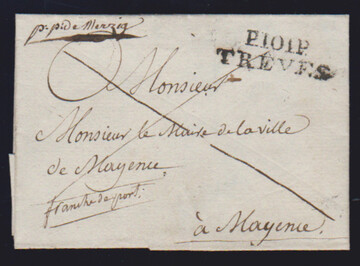 p. p. de Merzig
P.101.P.
TRÈVES
Monsieur
Monsieur le Maire de la ville
de Mayence
franche de port.
à Mayence.